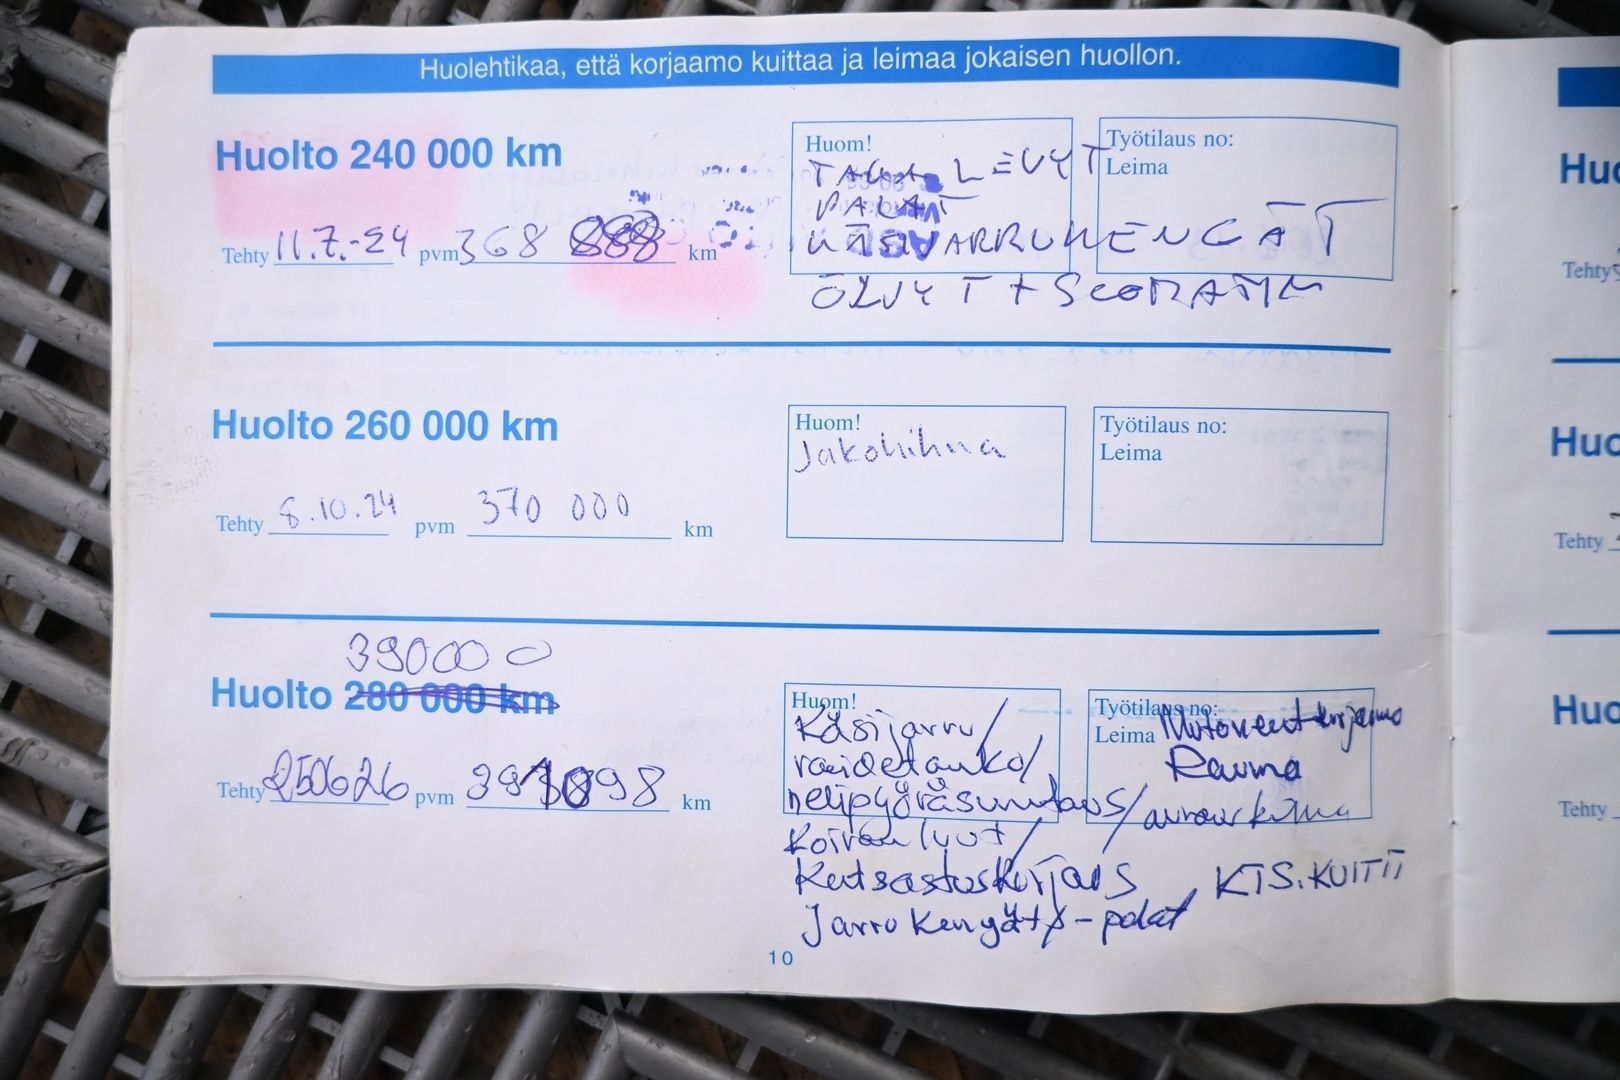 Huolehtikaa, että korjaamo kuittaa ja leimaa jokaisen huollon.
Huolto 240 000 km
Tehty 11.7.-24 pvm 368 888 km
Huom!
TAKA LEVYT
PALAT
KÄSIJARRUKENGÄT
ÖLJYT +
Työtilaus no:
Leima
Huolto 260 000 km
Tehty 8.10.24 pvm 370 000 km
Huom!
Jakohihna
Työtilaus no:
Leima
390000
Huolto 280 000 km
Tehty 250626 pvm km
Huom!
Käsijarru/
raidetanko/
nelipyöräsuuntaus/
Koiranluut/
Katsastuskorjaus
Jarrukengät/-palat
Työtilaus no:
Leima
Rauma
KTS. KUITTI
10
Huo
Tehty
Huo
Tehty
Huo
Tehty